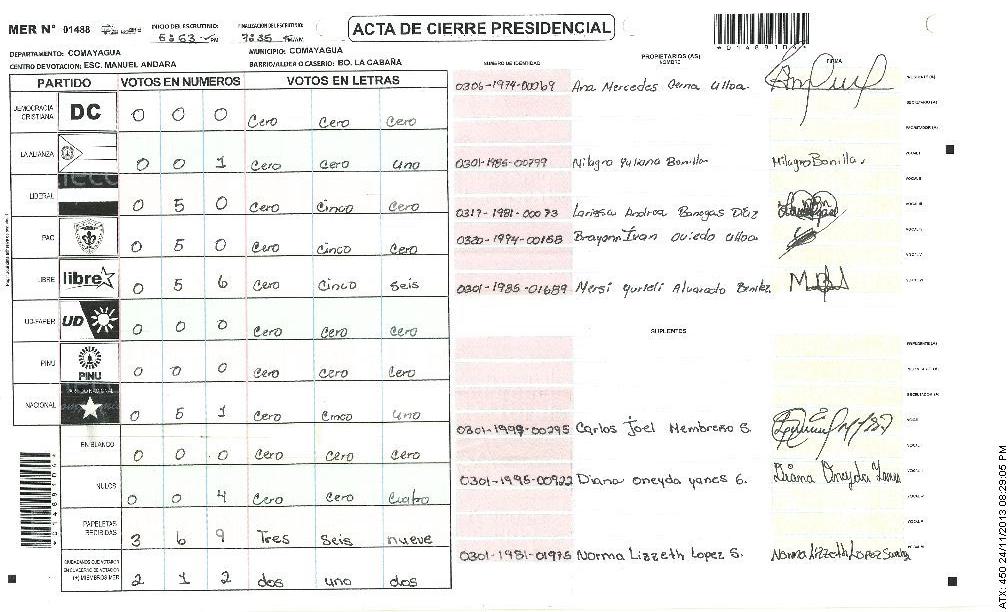 MER N° 01488
INICIO DEL ESCRUTINIO:
FINALIZACIÓN DEL ESCRUTINIO:
ACTA DE CIERRE PRESIDENCIAL
DEPARTAMENTO: COMAYAGUA
MUNICIPIO: COMAYAGUA
CENTRO DE VOTACION: ESC. MANUEL ANDARA
BARRIO/ALDEA O CASERIO: BO. LA CABAÑA
PARTIDO VOTOS EN NUMEROS VOTOS EN LETRAS
DEMOCRACIA CRISTIANA DC 0 0 0 Cero Cero Cero
LA ALIANZA 0 0 1 Cero Cero uno
LIBERAL 0 5 0 Cero Cinco Cero
PAC 0 5 0 Cero Cinco Cero
LIBRE libre 0 5 6 Cero Cinco seis
UD-FAPER UD 0 0 0 Cero Cero Cero
PINU PINU 0 0 0 Cero Cero Cero
NACIONAL 0 5 1 Cero Cinco uno
EN BLANCO 0 0 0 Cero Cero Cero
NULOS 0 0 4 Cero Cero Cuatro
PAPELETAS RECIBIDAS 3 6 9 Tres seis nueve
CIUDADANOS QUE VOTARON EN CUADERNO DE VOTACION (+) MIEMBROS MER 2 1 2 dos uno dos
PROPIETARIOS (AS)
NUMERO DE IDENTIDAD NOMBRE FIRMA
0306-1974-00069 Ana Mercedes Ulloa
0301-1985-00799 Milagro Yuliana Bonilla Milagro Bonilla
0317-1981-00073 Larissa Andrea Banegas Díaz
0320-1994-00158 Brayann Ivan Oviedo Ulloa
0301-1985-01689 Mersi Yurieli Alvarado Benitez
SUPLENTES
0301-1999-00295 Carlos Joel Membreño S.
0301-1995-00922 Diana Oneyda yanes G. Diana Oneyda Yanes
0301-1981-01975 Norma Lizzeth Lopez S. Norma Lizzeth Lopez
ATX: 450 24/11/2013 08:29:05 PM